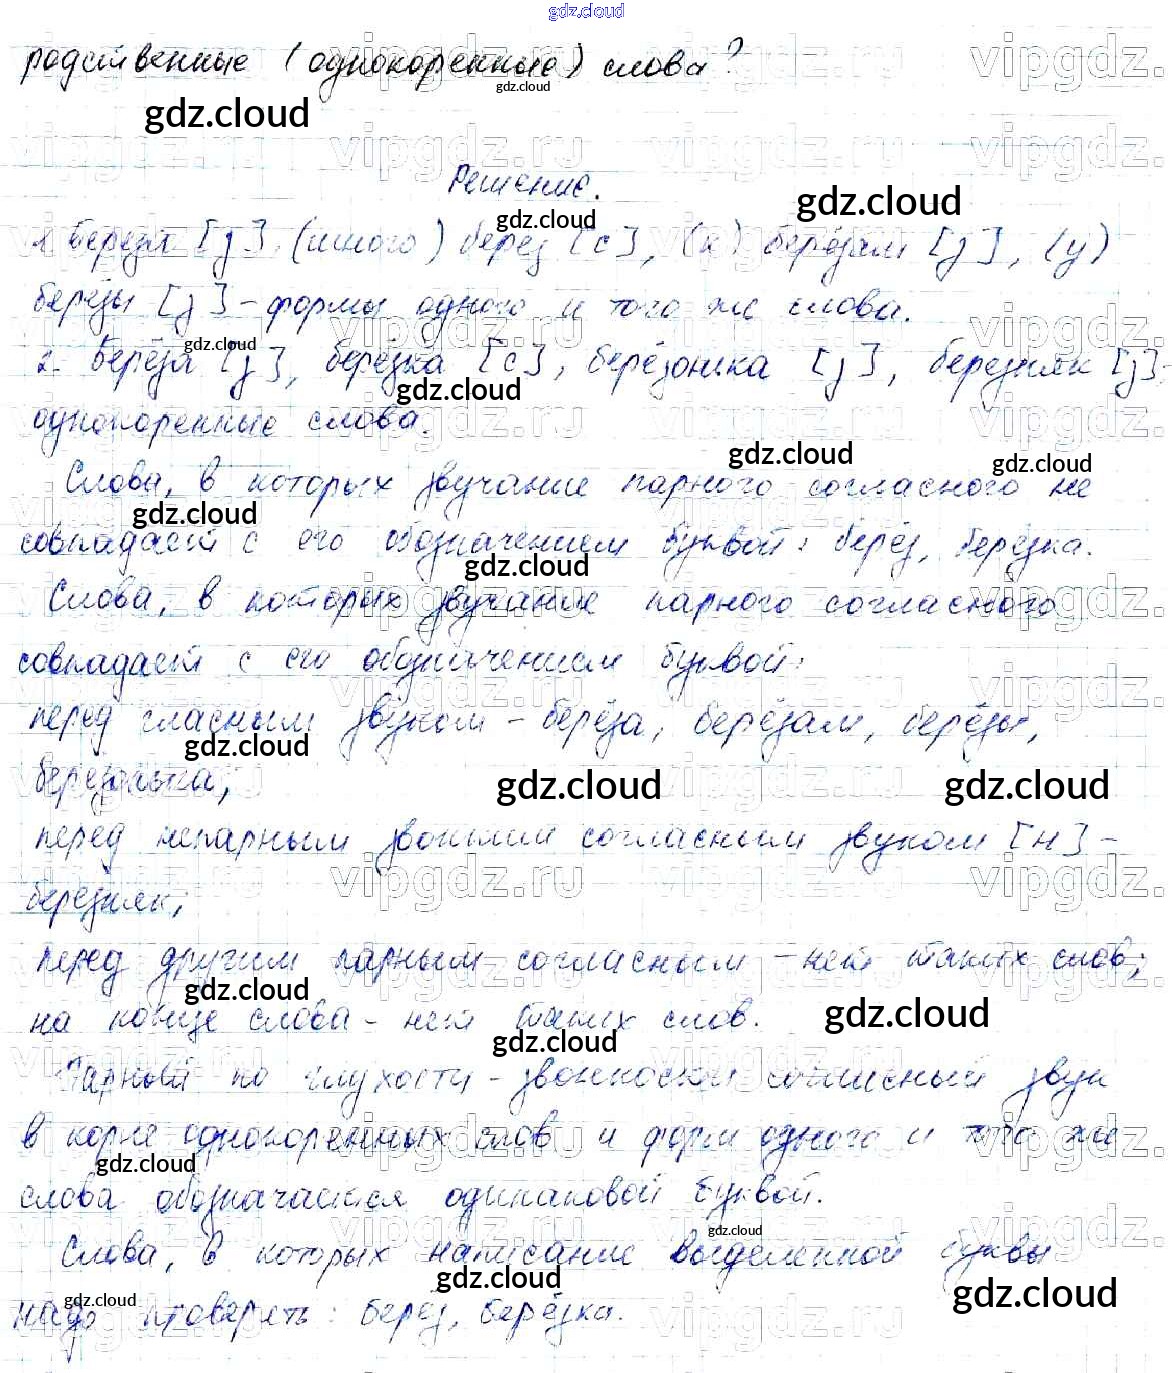 gdz.cloud
родственные (однокоренные) слова?
gdz.cloud
gdz.cloud
Решение.
gdz.cloud
gdz.cloud
1. берёза [з], (много) берёз [с], (к) берёзам [з], (у)
берёзы [з] - формы одного и того же слова.
gdz.cloud
2. Берёза [з], берёзка [с], берёзонька [з], березняк [з] -
gdz.cloud
однокоренные слова.
gdz.cloud
gdz.cloud
Слова, в которых звучание парного согласного не
gdz.cloud
совпадает с его обозначением буквой: берёз, берёзка.
gdz.cloud
Слова, в которых звучание парного согласного
совпадает с его обозначением буквой:
перед гласным звуком - берёза, берёзам, берёзы,
gdz.cloud
берёзонька;
gdz.cloud
gdz.cloud
перед непарным звонким согласным звуком [н] -
березняк;
перед другим парным согласным - нет таких слов;
gdz.cloud
на конце слова - нет таких слов.
gdz.cloud
gdz.cloud
Парный по глухости - звонкости согласный звук
в корне однокоренных слов и форм одного и того же
gdz.cloud
слова обозначается одинаковой буквой.
gdz.cloud
Слова, в которых написание выделенной буквы
gdz.cloud
gdz.cloud
gdz.cloud
надо проверять: берёз, берёзка.
vipgdz.ru